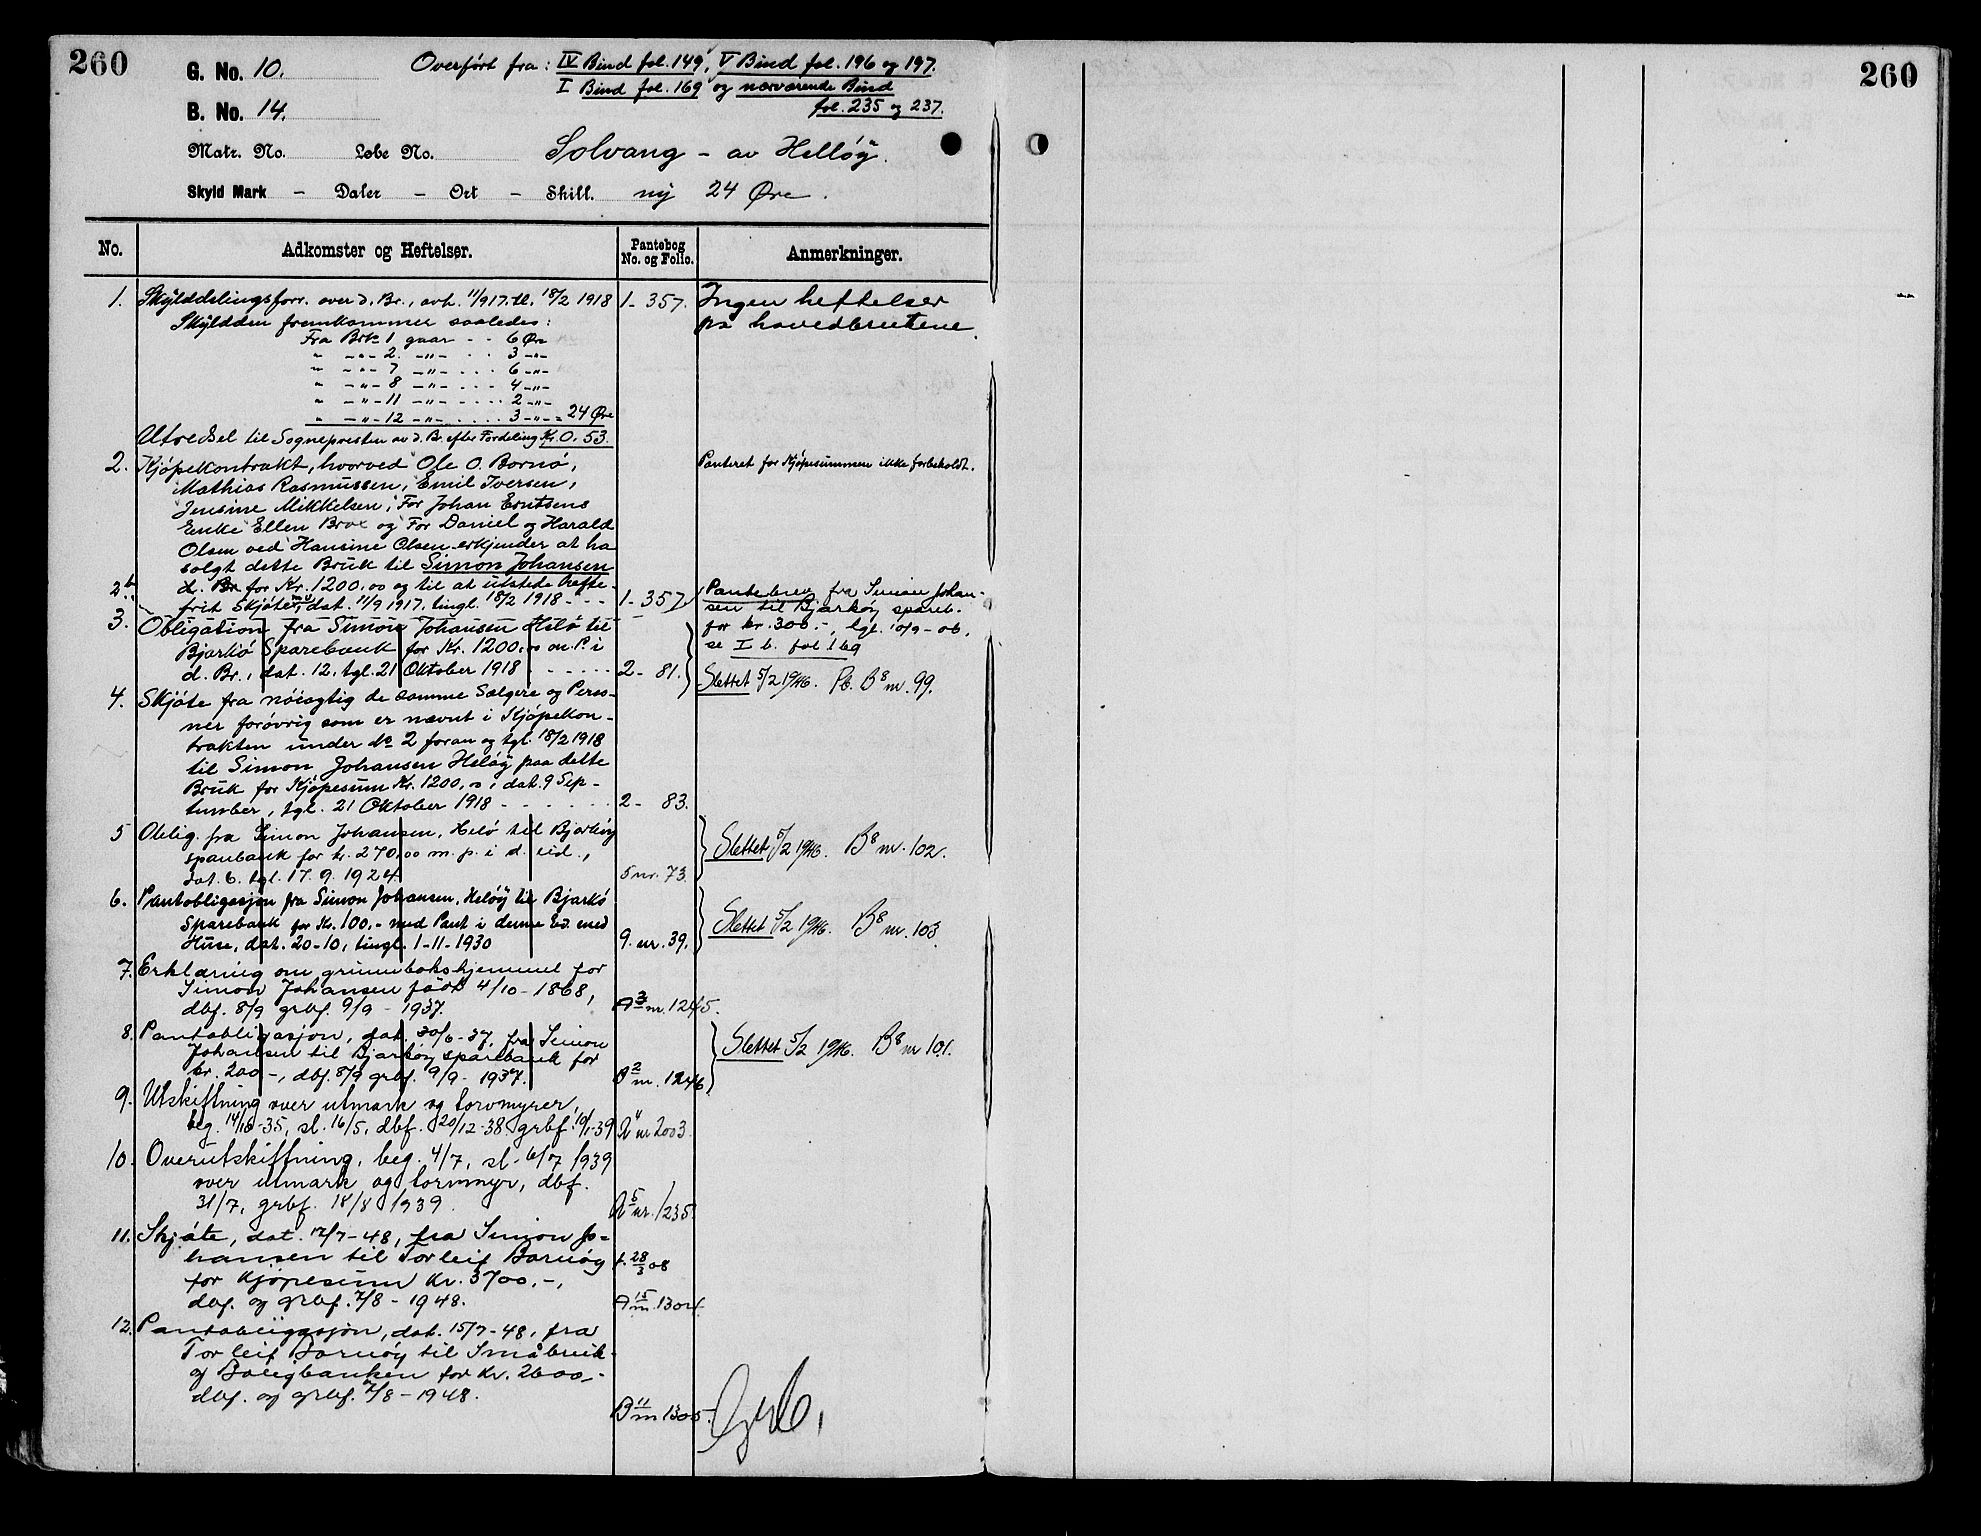 260
260
G. No. 10.
Overført fra: IV Bind fol. 149, V Bind fol. 196 og 197.
I Bind fol. 169 og nærværende Bind
fol. 235 og 237.
B. No. 14.
Matr. No. Løbe No. Solvang - av Helløy.
Skyld Mark - Daler - Ort - Skill. ny 24 Øre.
No. Adkomster og Heftelser. Pantebog No. og Folio. Anmerkninger.
1. Skylddelingsforr. over d. Br., avh. 11/9 17. tl. 18/2 1918 1- 357. Ingen heftelser
Skyldden fremkommer saaledes: pa hovedbrukene.
Fra Brk 1 gaar - - 6 Øre
" -"- 2. -"- . . . 3 -"-
" -"- 7 -"- . . . 6 -"-
" -"- 8 -"- . . . 4 -"-
" -"- 11 -"- . . . . 2 -"-
" -"- 12 -"- . . . . 3 -"- = 24 Øre
Utredsel til Sognepresten av d. Br. efter Fordeling Kr. 0,53.
2. Kjøpekontrakt, hvorved Ole O. Bornø, Panteret for Kjøpesummen ikke forbeholdt.
Mathias Rasmussen, Emil Iversen,
Jensine Mikkelsen, For Johan Erntsens
Enke Ellen Brox og For Daniel og Harald
Olsen ved Hansine Olsen erkjender at ha
solgt dette Bruk til Simon Johansen
d. Br for Kr. 1200,00 og til at utstede hefte-
frit Skjøte, dat. 11/9 1917, tingl. 18/2 1918 - - - 1- 357.
2b. Pantebrev fra Simon Johan-
sen til Bjarkøy spareb.
for kr. 300.-, tgl. 10/9-06,
se I b. fol 169
3. Obligation fra Simon Johansen Helø til
Bjarkø Sparebank for Kr. 1200,00 m. P. i
d. Br., dat. 12, tgl. 21 Oktober 1918 - - - - - 2- 81. Slettet 5/2 1946. Pb. B8 nr. 99.
4. Skjøte fra nøiagtig de samme Sælgere og Perso-
ner forøvrig som er nævnt i Kjøpekon-
trakten under No 2 foran og tgl. 18/2 1918
til Simon Johansen Heløy paa dette
Bruk for Kjøpesum Kr. 1200,00, dat. 9 Sep-
tember, tgl. 21 Oktober 1918 - - - - - - 2- 83.
5 Oblig. fra Simon Johansen, Helø til Bjarkøy
sparebank for kr. 270,00 m. p. i d. eid.,
dat. 6. tgl. 17. 9. 1924. 5 nr. 73. Slettet 5/2 1946. B8 nr. 102.
6. Pantobligasjon fra Simon Johansen, Heløy til Bjarkø
Sparebank for Kr. 100,- med Pant i denne Ed. med
Huse, dat. 20-10, tingl. 1-11-1930 9. nr. 39. Slettet 5/2 1946. B8 nr. 103.
7. Erklæring om grunnbokshjemmel for
Simon Johansen født 4/10-1868,
dbf. 8/9 grbf. 9/9 - 1937. A3 nr. 1245.
8. Pantobligasjon, dat. 30/6-37, fra Simon
Johansen til Bjarkøy sparebank for
kr. 200-, dbf. 8/9 grbf. 9/9- 1937. B2 nr. 1246 Slettet 5/2 1946. B8 nr 101.
9. Utskiftning over utmark og torvmyrer,
beg. 14/10-35, sl. 16/5, dbf. 20/12-38 grbf. 10/1-39 nr 2003.
10. Overutskiftning, beg. 4/7, sl. 6/7 1939
over utmark og torvmyr, dbf.
31/7, grbf. 18/8 1939. A5 nr. 1235.
11. Skjøte, dat. 12/7-48, fra Simon Jo-
hansen til Torleif Bornøy f. 28/3 08
for Kjøpesum kr. 3700,-,
dbf. og grbf. 7/8 - 1948. A15 nr. 1304.
12. Pantobligasjon, dat. 15/7-48, fra
Torleif Bornøy til Småbruk-
og Boligbanken for kr. 2600,-
dbf. og grbf. 7/8 - 1948. B11 nr 1305.